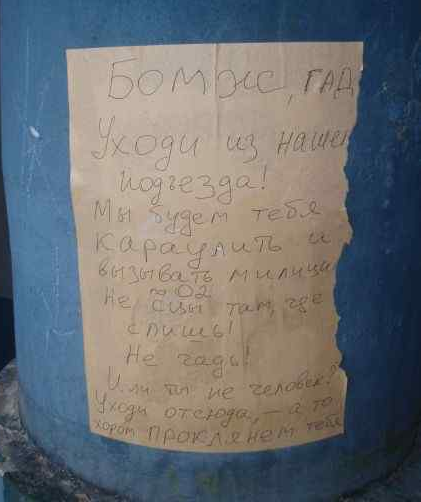 БОМЖ, ГАД
Уходи из нашег
подъезда!
Мы будем тебя
караулить и
вызывать милици
по 02
Не сцы там, где
спишь!
Не гадь!
Или ты не человек?
Уходи отсюда, – а то
хором ПРОКЛЯНЕМ тебя